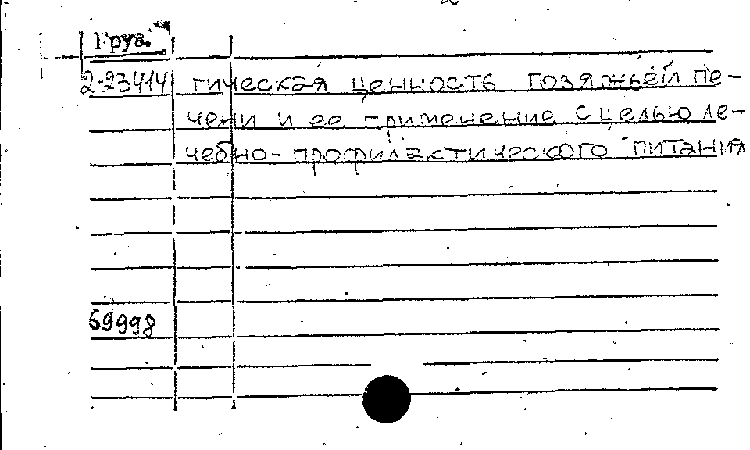 1 руб.
2-23414 гическая ценность говяжьей пе-
чени и ее применение с целью ле-
чебно-профилактического питания
69998